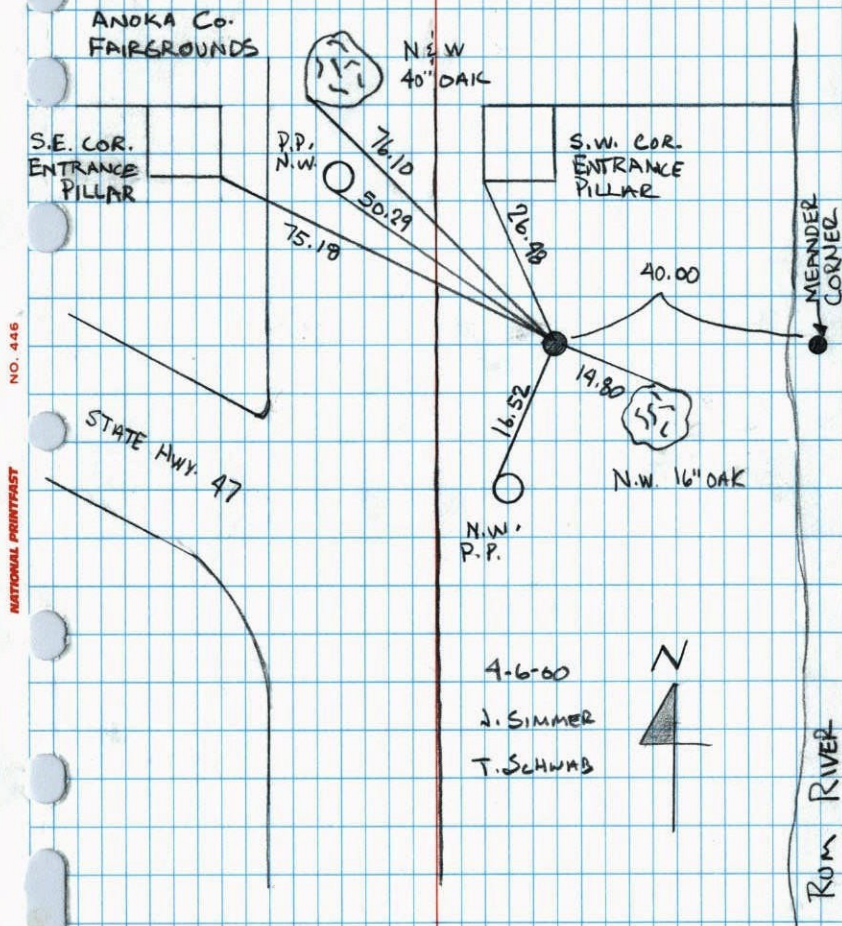 ANOKA CO.
FAIRGROUNDS
N & W
40" OAK
S.E. COR.
ENTRANCE
PILLAR
P.P.
N.W.
76.10
50.29
75.18
S.W. COR.
ENTRANCE
PILLAR
26.48
40.00
MEANDER
CORNER
14.80
16.52
N.W. 16" OAK
N.W.
P.P.
STATE HWY. 47
4-6-00
J. SIMMER
T. SCHWAB
N
RUM RIVER
NO. 446
NATIONAL PRINTFAST